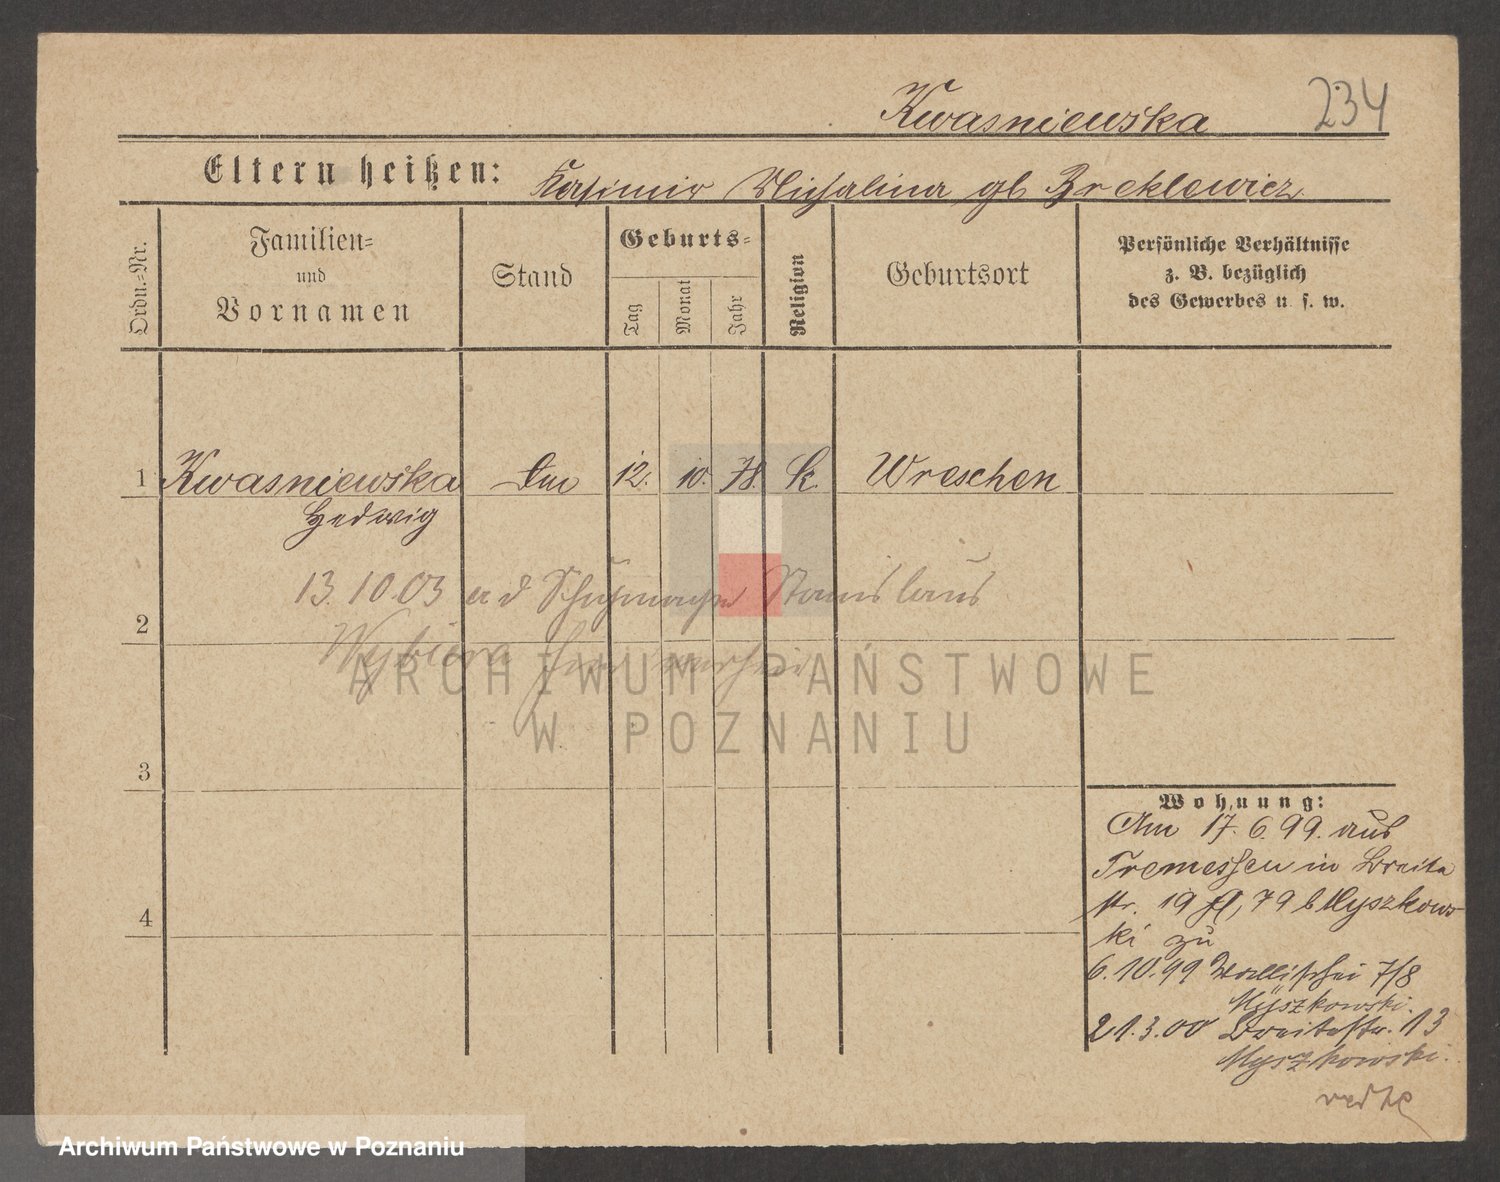 Kwasniewska 234
Eltern heißen: Kasimir Michalina gb
Ordn.-Nr.
Familien-
und
Vornamen
Stand
Geburts-
Tag
Monat
Jahr
Religion
Geburtsort
Persönliche Verhältnisse
z. B. bezüglich
des Gewerbes u. s. w.
1 Kwasniewska 12. 10. 78. k. Wreschen
Hedwig
13.10.03 Schuhmacher Stanislaus
2 Wybiera
ARCHIWUM PAŃSTWOWE
W POZNANIU
3
Wohnung:
Am 17. 6. 99. aus
Tremessen in Breite
str. 19 79 b Myszkows-
4 ki zu
6.10.99 Wallischei 7/8
Myszkowski.
21.3.00 Breitestr. 13
Myszkowski.
Archiwum Państwowe w Poznaniu